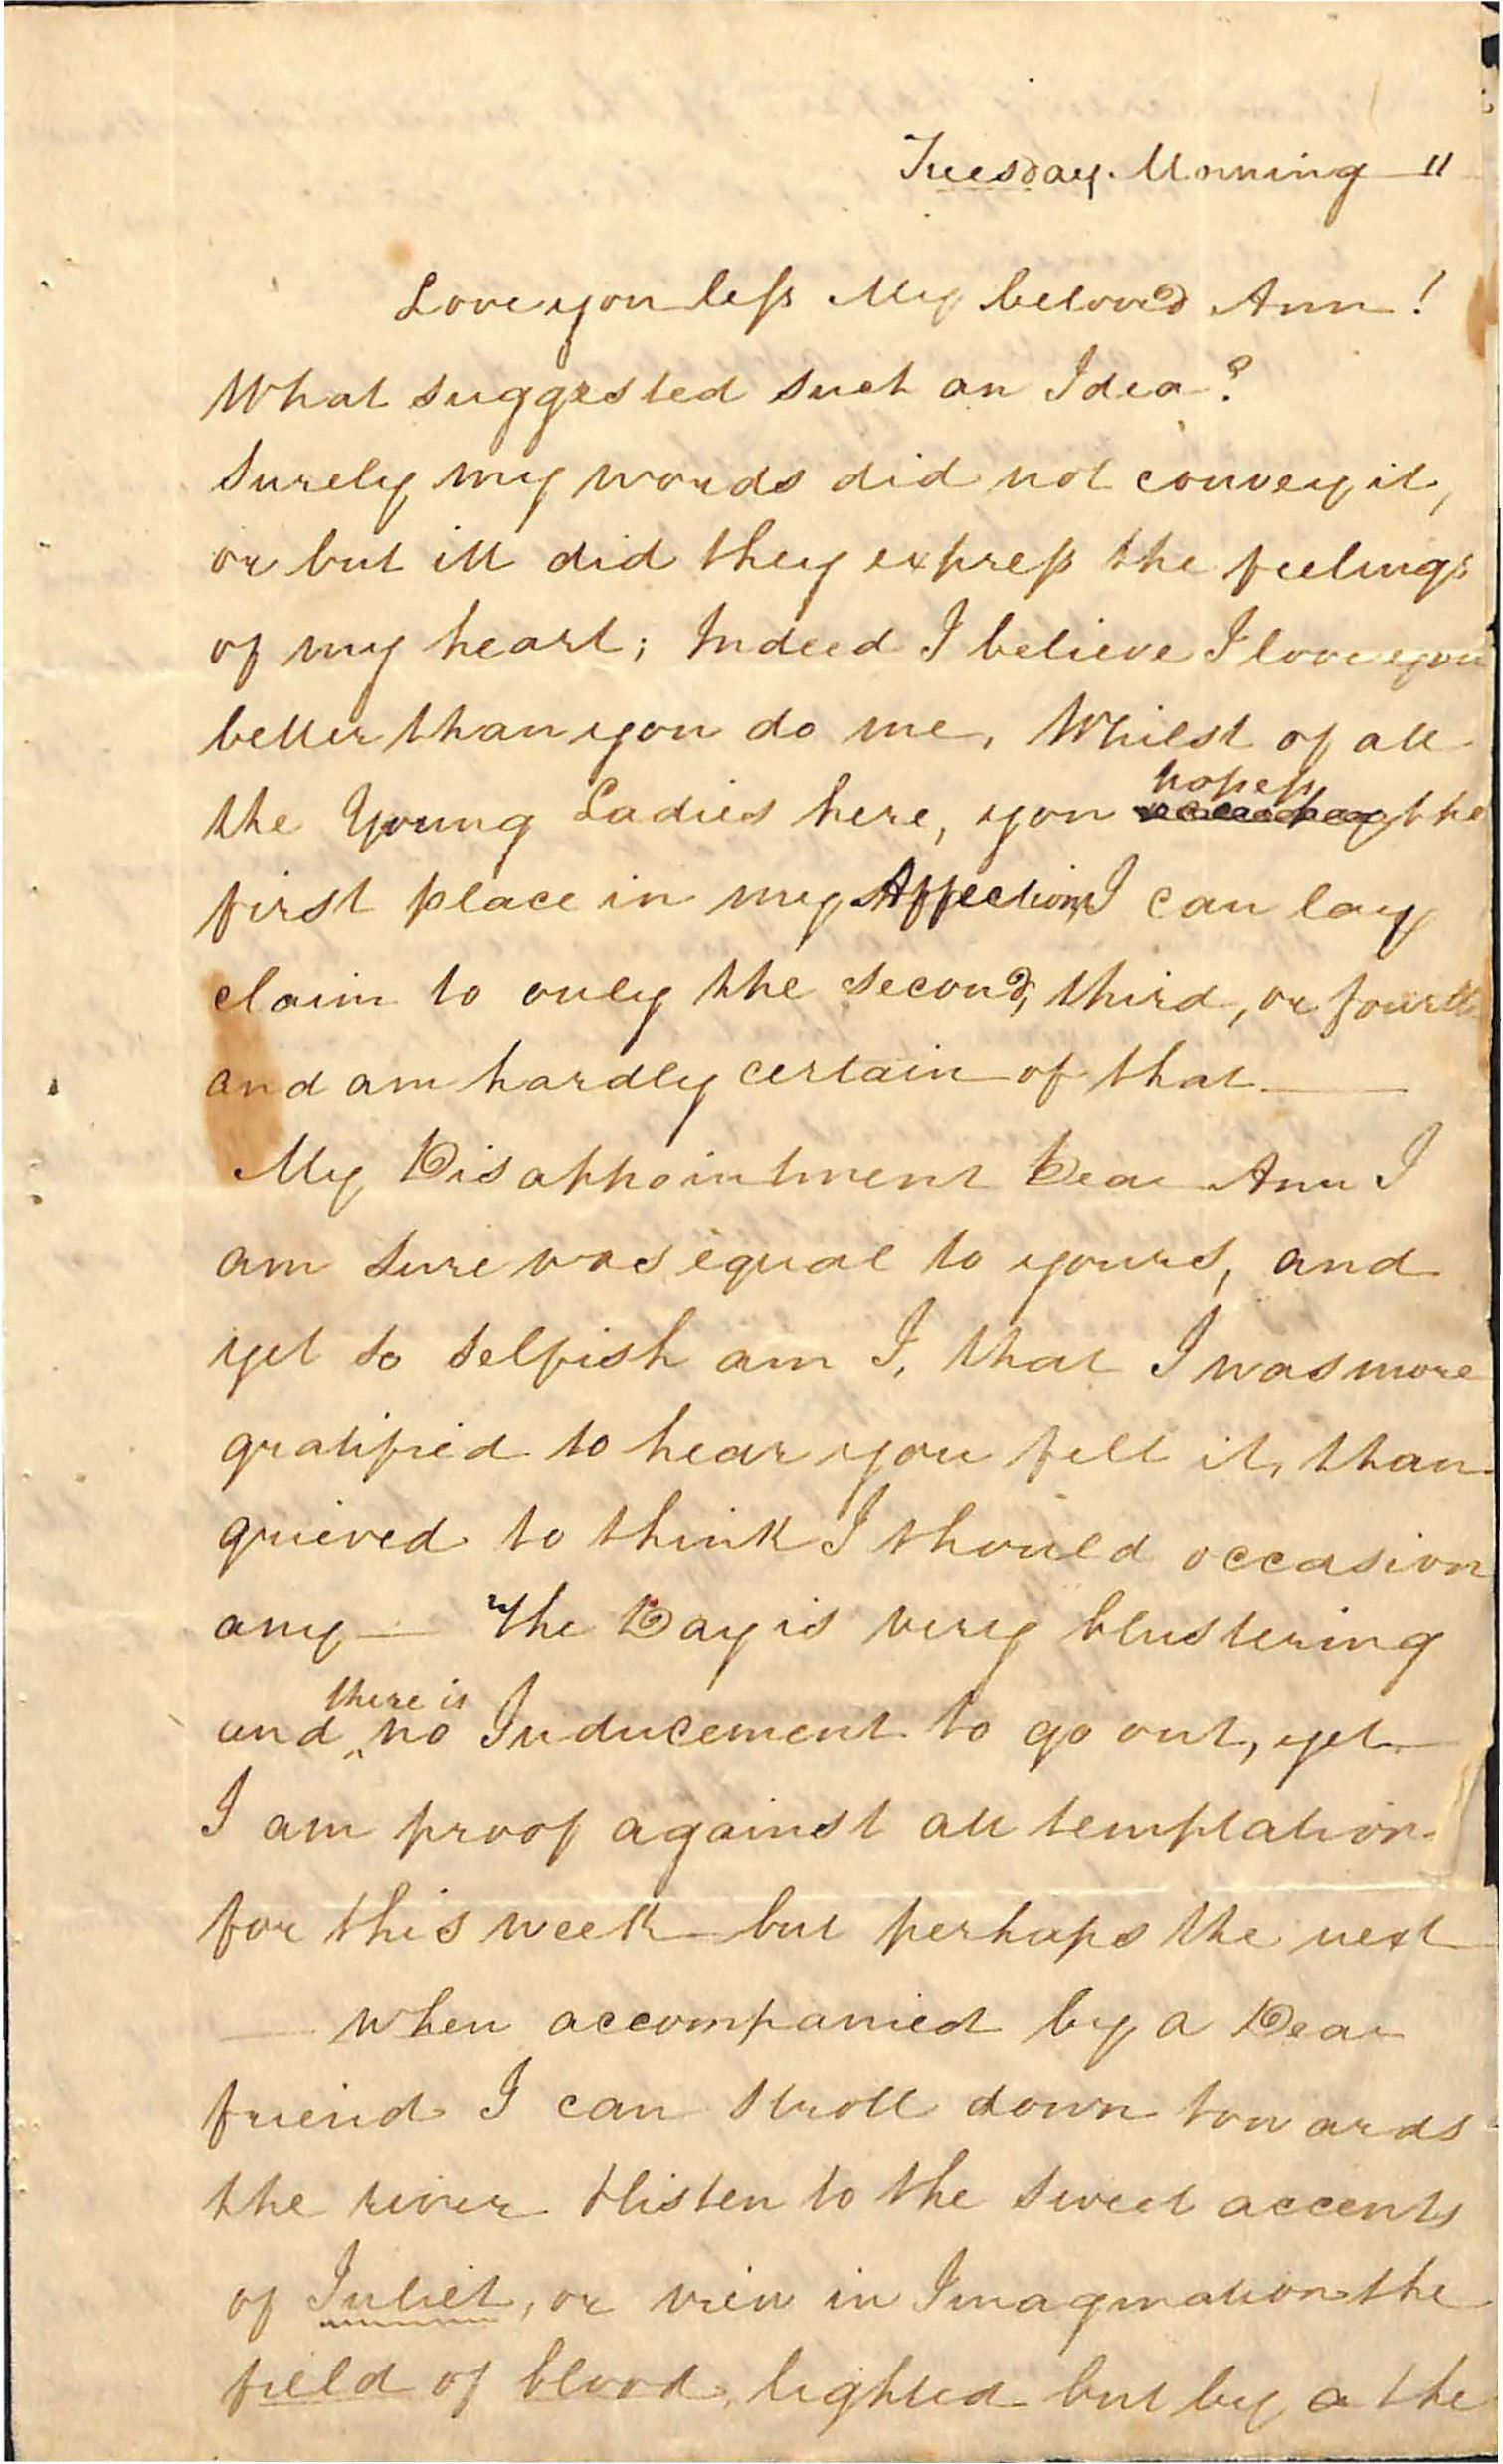 Tuesday. Morning "
Love you less My beloved Ann!
What suggested such an Idea?
Surely my words did not convey it,
or but ill did they express the feelings
of my heart; Indeed I believe I love you
better than you do me, Whilst of all
the Young Ladies here, you possess the
first place in my Affections, I can lay
claim to only the second, third, or fourth
and am hardly certain of that—
My Disappointment Dear Ann I
am sure was equal to yours, and
yet so selfish am I, that I was more
gratified to hear you felt it, than
grieved to think I should occasion
any— The Day is very blustering
and there is no Inducement to go out, yet
I am proof against all temptation
for this week but perhaps the next
— when accompanied by a Dear
friend I can stroll down towards
the river & listen to the sweet accents
of Juliet, or view in Imagination the
field of blood, lighted but by a the